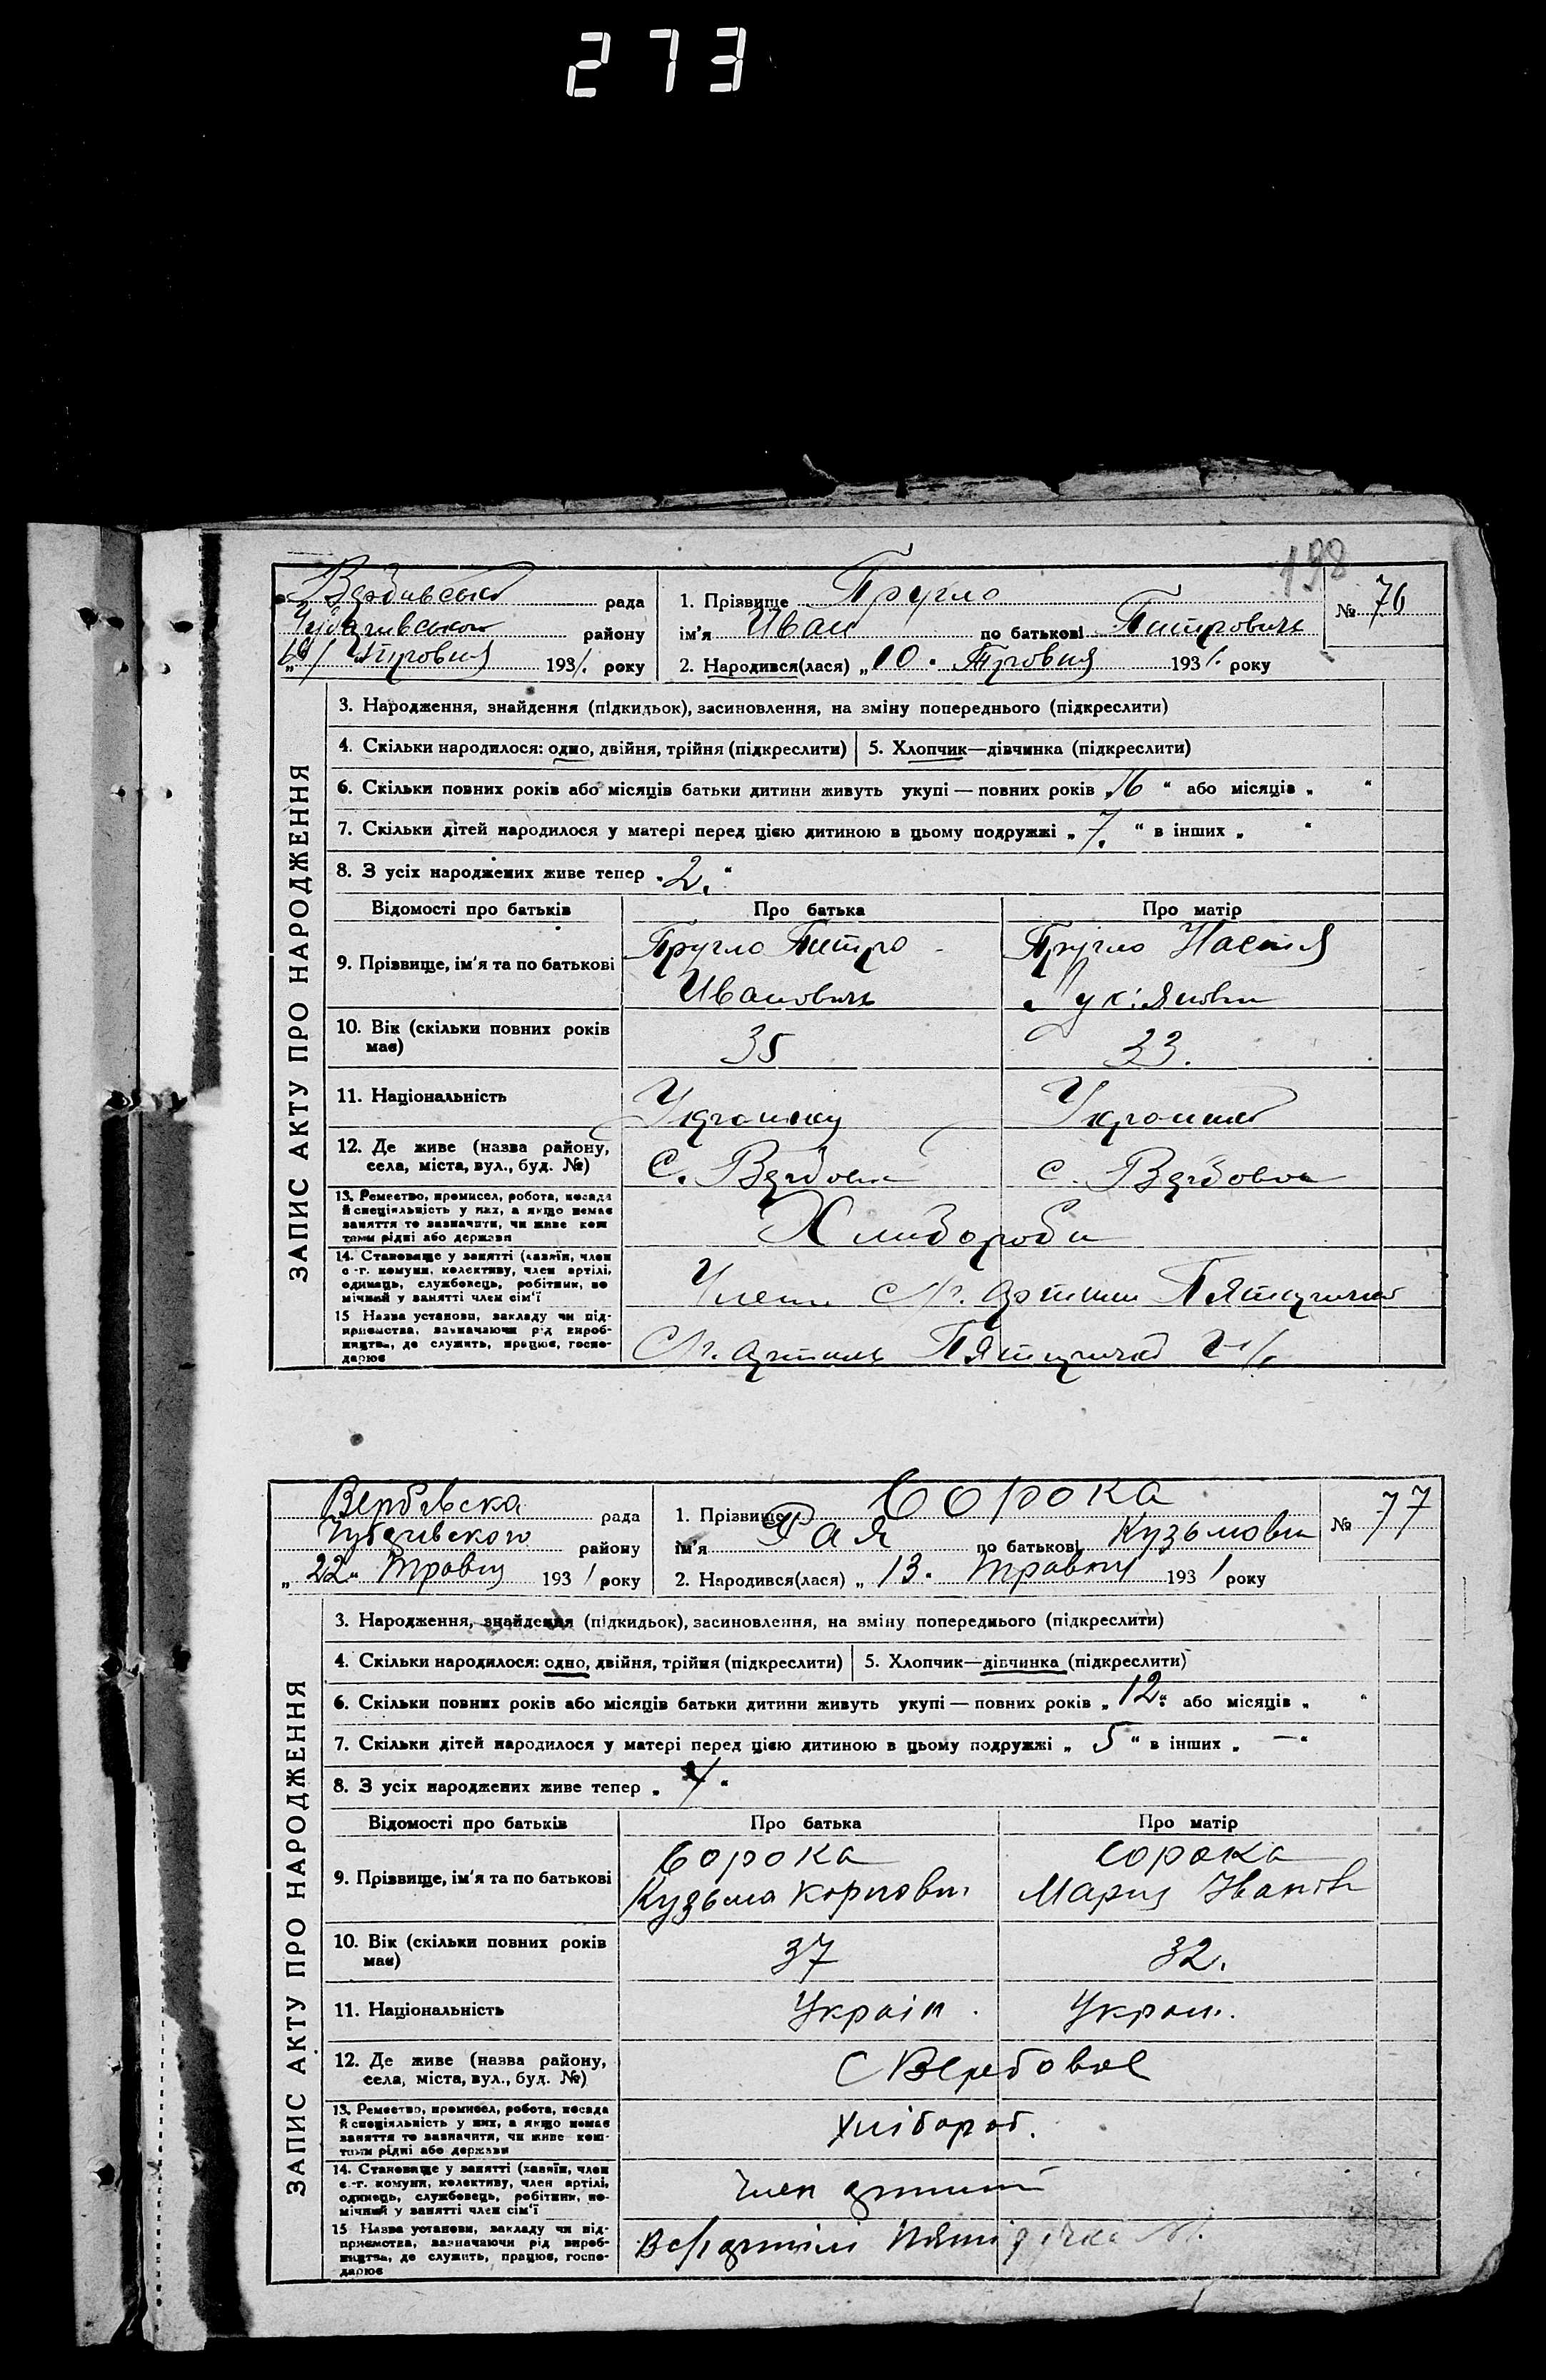 273
198
Вербівська рада
Чубарівського району
1931. року
1. Прізвище Пругло
ім'я Иван по батькові Питрович
2. Народився(лася) „10. Тровня 1931. року
№ 76
ЗАПИС АКТУ ПРО НАРОДЖЕННЯ
3. Народження, знайдення (підкидьок), засиновлення, на зміну попереднього (підкреслити)
4. Скільки народилося: одно, двійня, трійня (підкреслити) 5. Хлопчик—дівчинка (підкреслити)
6. Скільки повних років або місяців батьки дитини живуть укупі — повних років „16 “ або місяців „ “
7. Скільки дітей народилося у матері перед цією дитиною в цьому подружжі „ 7. “ в інших „ “
8. З усіх народжених живе тепер „2. “
Відомості про батьків Про батька Про матір
9. Прізвище, ім'я та по батькові
Пругло Питро
Иванович
Пругло Настя
Лук'яновн
10. Вік (скільки повних років має) 35 33.
11. Національність
12. Де живе (назва району, села, міста, вул., буд. №) С. Вербова с. Вербова
13. Ремество, промисел, робота, посада
й спеціяльність у них, а якщо немає
заняття то зазначити, чи живе кош
тами рідні або держави
Хлибороби
14. Становище у занятті (хазяїн, член
с.-г. комуни, колективу, член артілі,
одинець, службовець, робітник, по
мічний у занятті член сім'ї
Члени артили Пятиричка
15 Назва установи, закладу чи під-
приємства, зазначаючи рід вироб-
ництва, де служить, працює, госпо-
дарює
артиль Пятиричка
Вербівська рада
Чубарівского району
„22“ травня 1931 року
1. Прізвище Сорока
ім'я Рая по батькові Кузьмовн
2. Народився(лася) „13. травня 1931 року
№ 77
ЗАПИС АКТУ ПРО НАРОДЖЕННЯ
3. Народження, знайдення (підкидьок), засиновлення, на зміну попереднього (підкреслити)
4. Скільки народилося: одно, двійня, трійня (підкреслити) 5. Хлопчик—дівчинка (підкреслити)
6. Скільки повних років або місяців батьки дитини живуть укупі — повних років „12“ або місяців „ “
7. Скільки дітей народилося у матері перед цією дитиною в цьому подружжі „ 5 “ в інших „ — “
8. З усіх народжених живе тепер „ “
Відомості про батьків Про батька Про матір
9. Прізвище, ім'я та по батькові
Сорока
Кузьма Карпович
Сорока
Мария Іванів
10. Вік (скільки повних років має) 37 32.
11. Національність Украін. Украін.
12. Де живе (назва району, села, міста, вул., буд. №) С Вербовое
13. Ремество, промисел, робота, посада
й спеціяльність у них, а якщо немає
заняття то зазначити, чи живе кош-
тами рідні або держави
Хлібороб.
14. Становище у занятті (хазяїн, член
с.-г. комуни, колективу, член артілі,
одинець, службовець, робітник, по-
мічний у занятті член сім'ї
член артилі
15 Назва установи, закладу чи під-
приємства, зазначаючи рід вироб-
ництва, де служить, працює, госпо-
дарює
В с/г артілі Пятирічка